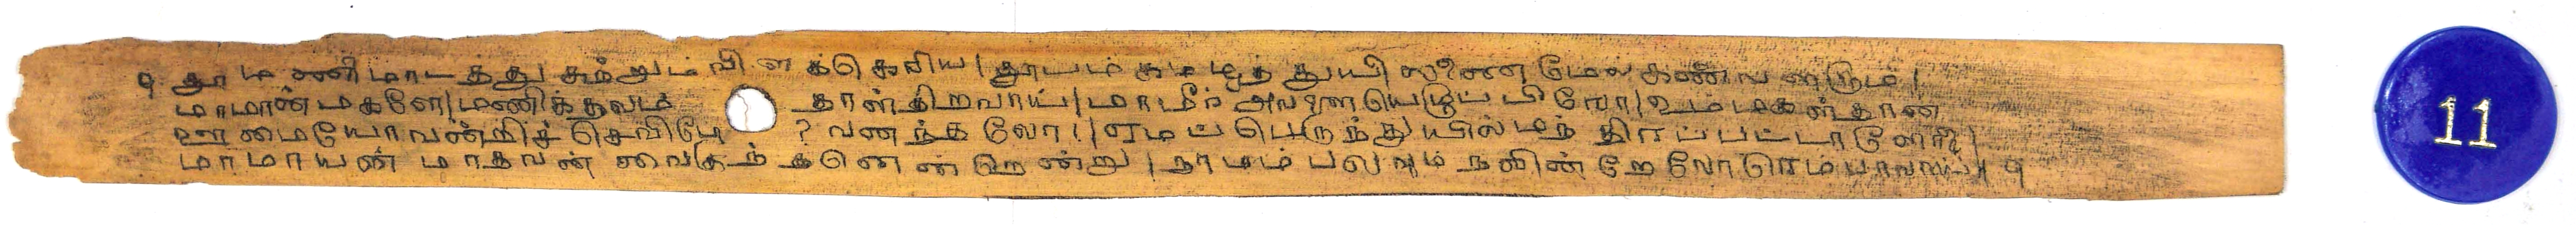 ௯ தூமணிமாடத்து சுற்றும் விளக்கெரிய | தூபம் கமழத் துயிலணைமேல் கண்வளரும் |
மாமான் மகளே | மணிக்கதவம் தாள் திறவாய் | மாமீர் அவளை யெழுப்பீரோ | உம் மகள்தான்
ஊமையோ வன்றிச் செவிடோ ? வனந்தலோ | ஏமப் பெருந்துயில் மந்திரப்பட்டாளோ? |
மாமாயன் மாதவன் வைகுந்தனென்றென்று | நாமம் பலவும் நவின்றேலோரெம்பாவாய் || ௯
11